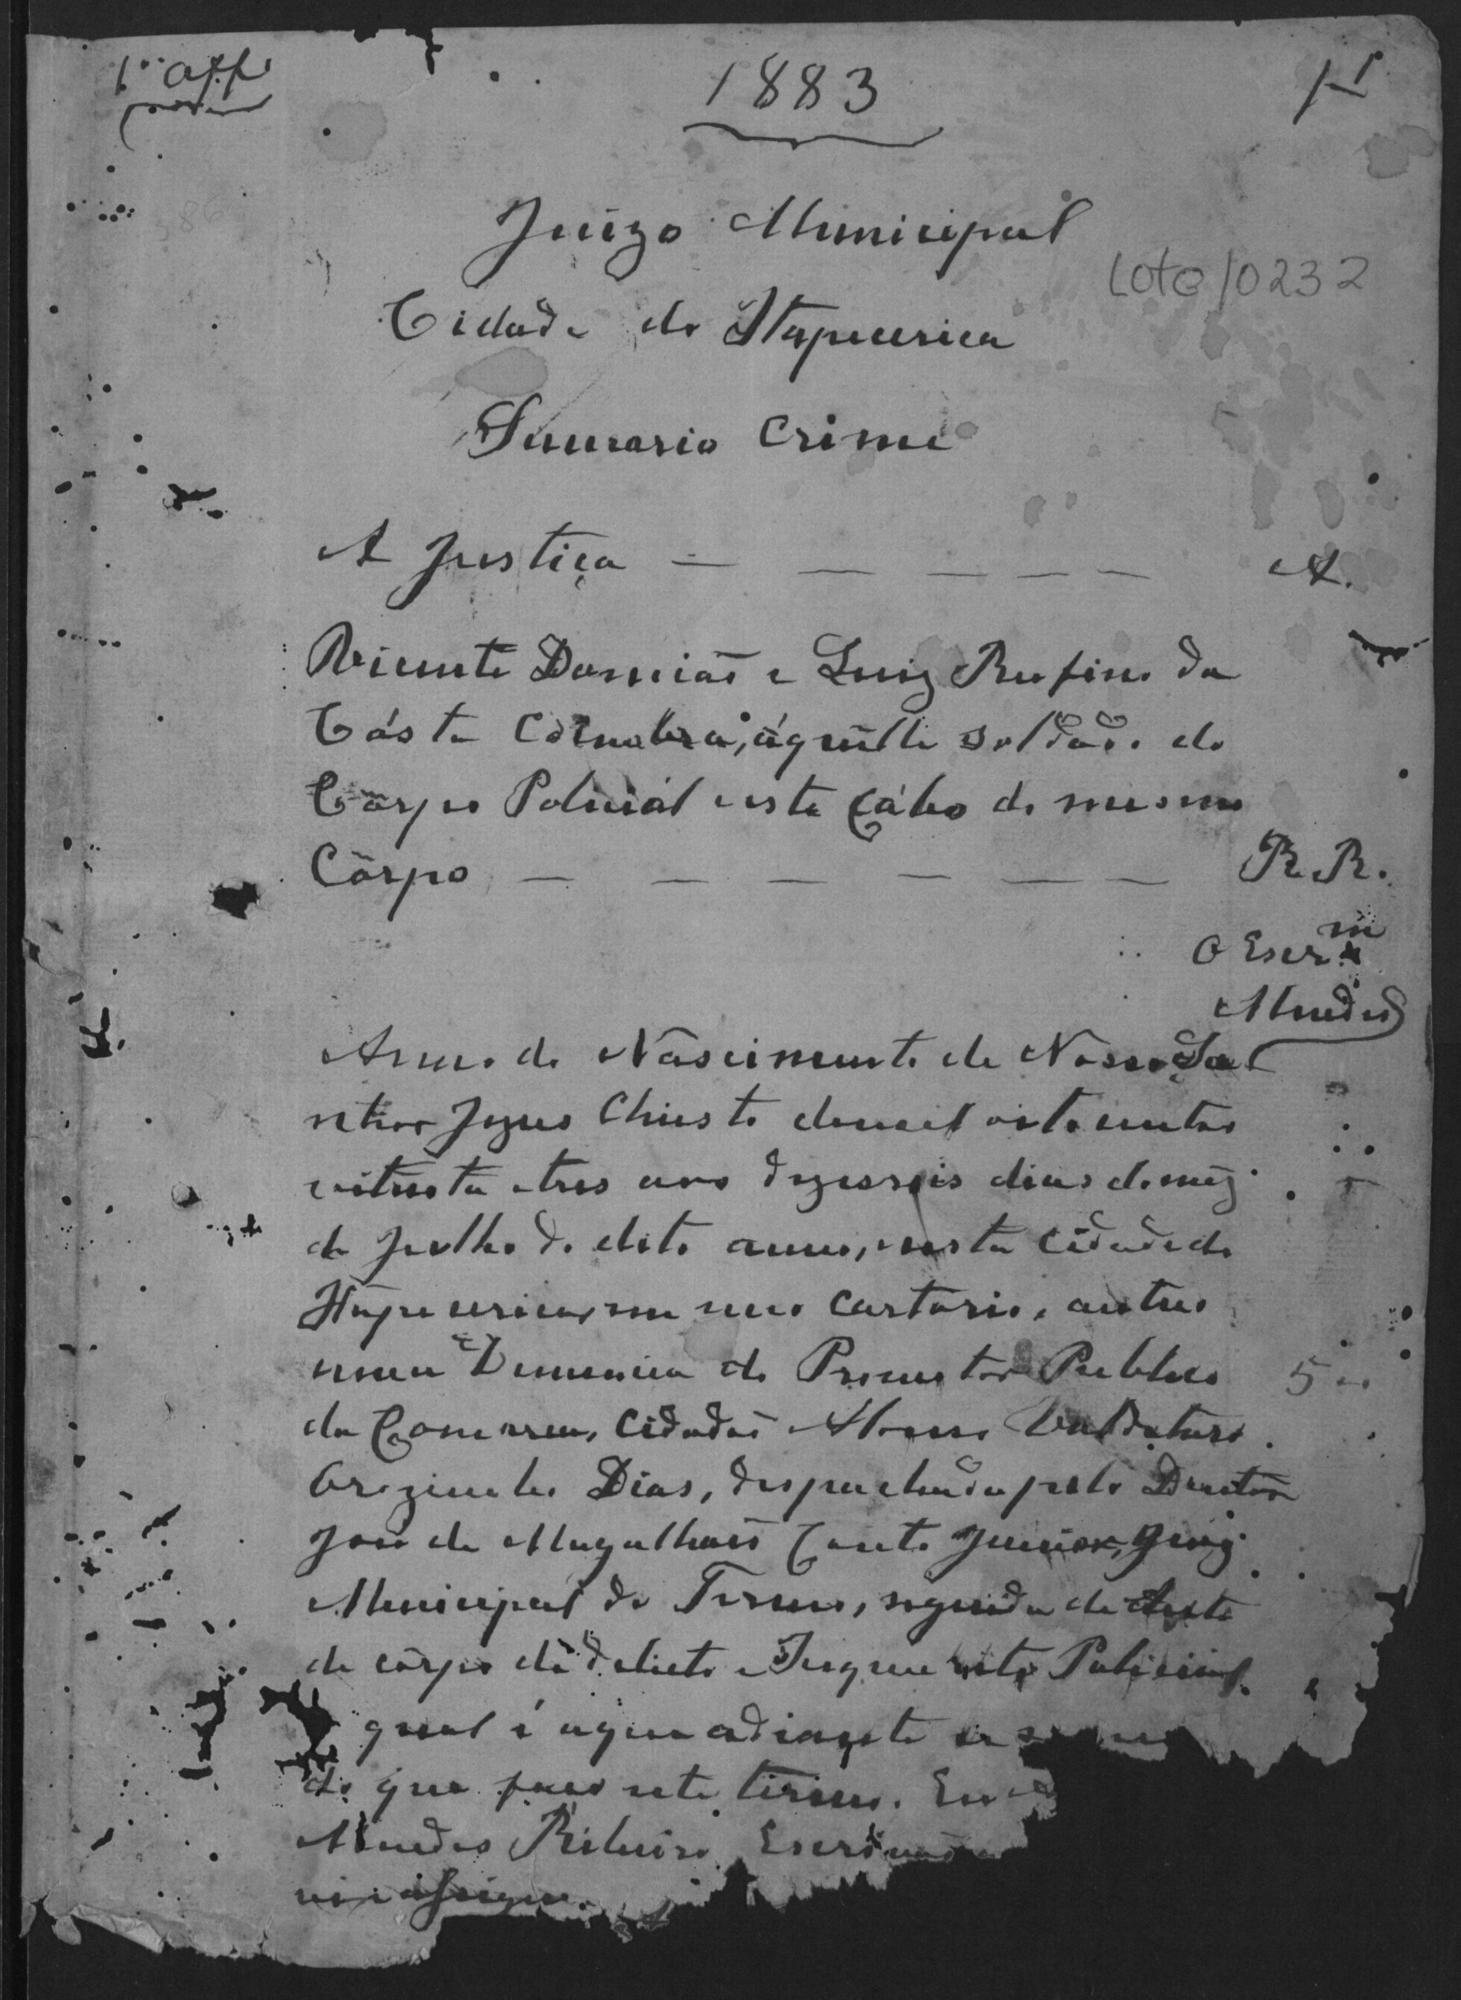 1883
Juizo Municipal
Lote/0232
Cidade de Itapecerica
Summario Crime
A Justiça — — — — — A.
Vicente Damião e Luiz Rufino da
Cósta Coimbra, aquelle soldado do
Corpo Policial e este Cabo do mesmo
Corpo — — — — — — R.R.
O Escr.m
Mendes
Anno do Nascimento de Nosso Se
nhor Jezus Christo de mil oitocentos
e oitenta e tres aos dezesseis dias do mez
de Julho do dito anno, nesta Cidade de
Itapecerica, em meu Cartorio, autuo
uma Denuncia do Promotor Publico
da Comarca, Cidadão
Dias, despachada pelo Doutor
José de Magalhães Couto Junior, Juiz
Municipal do Termo, seguida de Auto
de côrpo de delicto e Inquerito Policial
qual é a que adiante se
do que faço este termo. Eu
Mendes Ribeiro Escrivão
assigno.